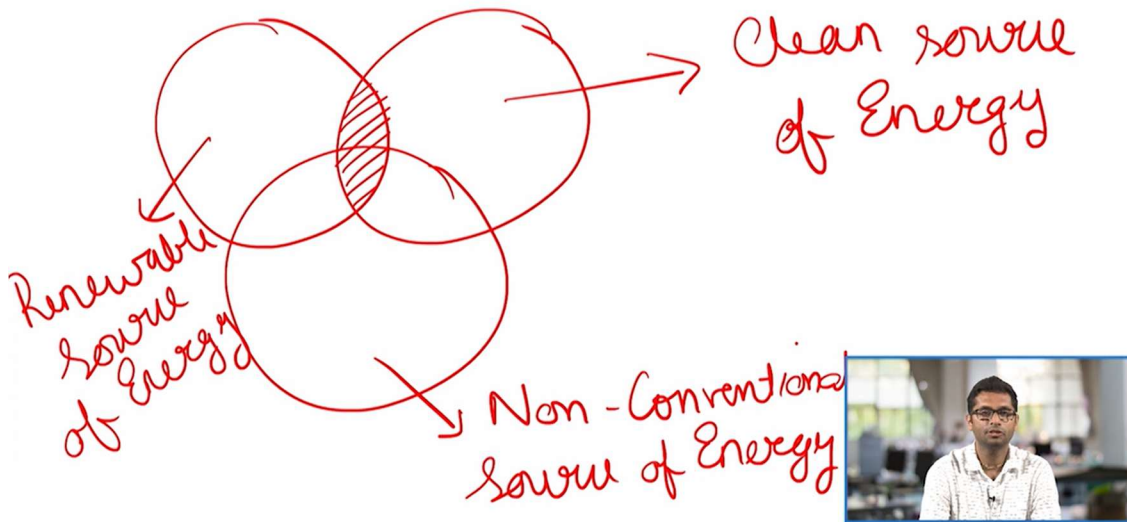 Clean source
of Energy
Renewable
source
of Energy
Non-Conventiona
source of Energy